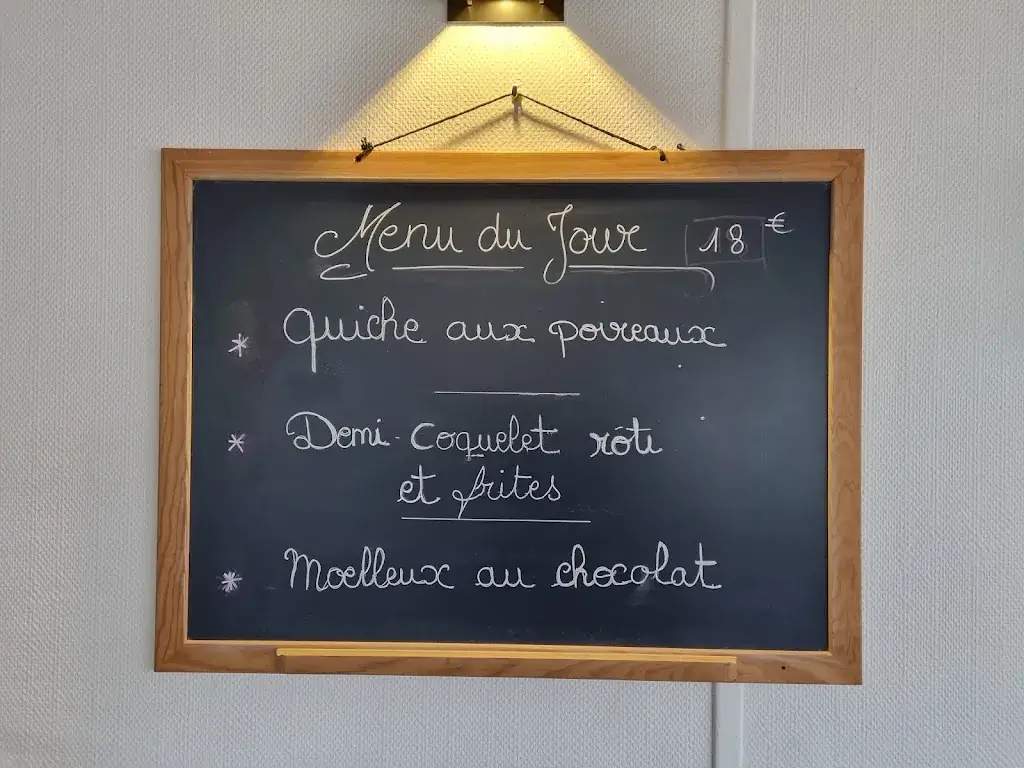 Menu du Jour 18 €
* Quiche aux poireaux
* Demi-Coquelet rôti
et frites
* Moelleux au chocolat